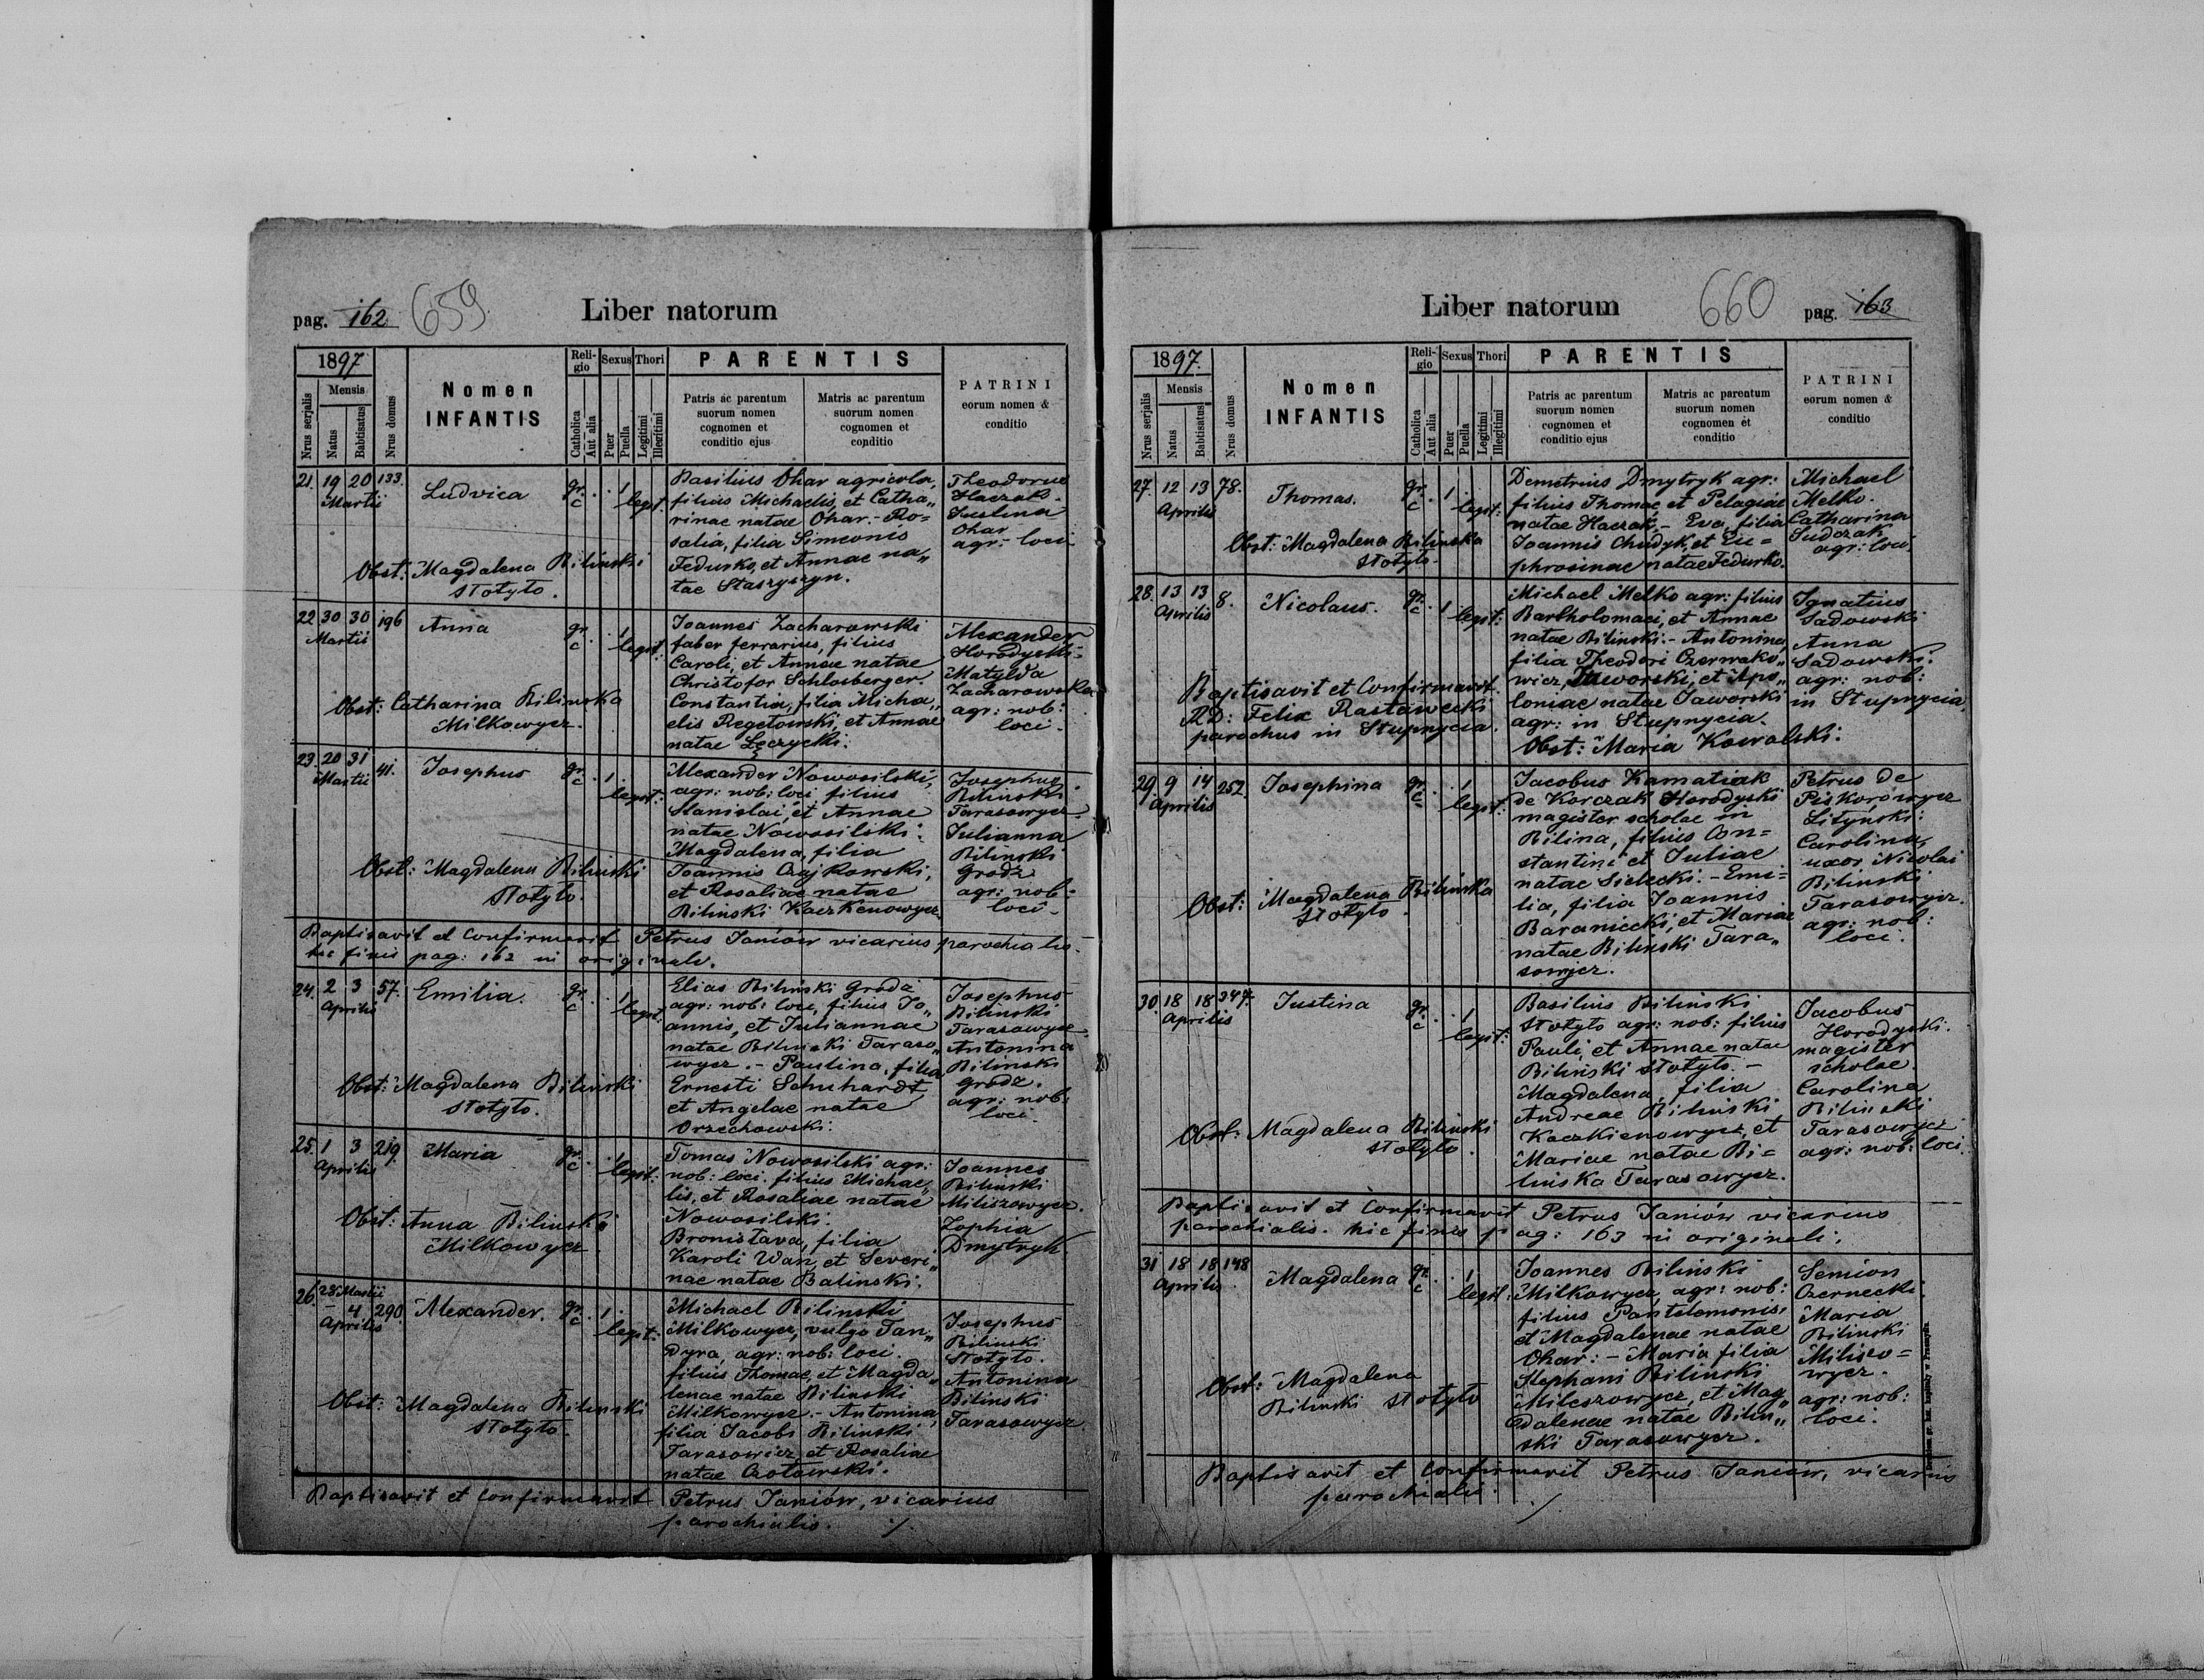 pag. 162 659 Liber natorum
1897
Reli-
gio
Sexus
Thori
PARENTIS
Nrus serjalis
Mensis
Natus
Babtisatus
Nrus domus
Nomen
INFANTIS
Catholica
Aut alia
Puer
Puella
Legitimi
Illegitimi
Patris ac parentum
suorum nomen
cognomen et
conditio ejus
Matris ac parentum
suorum nomen
cognomen et
conditio
PATRINI
eorum nomen &
conditio
21. 19 20 133.
Martii
Ludvica
gr. c
1
legt.
Basilius Ohar agricola,
filius Michaelis, et Catha„
rinae natae Ohar. - Ro=
salia, filia Simeonis
Fedurko, et Annae na„
tae Staszyszyn.
Theodorus
Haczak.
Justina
Ohar
agr: loci
Obst: Magdalena Bilinski
Stotyło.
22 30 30 196
Martii
Anna
gr. c
1
legit:
Joannes Zacharowski
faber ferrarius, filius
Caroli, et Annae natae
Christofor Schlosberger.
Constantia, filia Micha„
elis Regetowski, et Annae
natae Łęczycki.
Alexander
Horodyski-
Matylda
Zacharowska
agr: nob:
loci.
Obst: Catharina Bilinska
Milkowycz.
23. 20 31 41.
Martii
Josephus
gr. c
1
legit:
Alexander Nowosilski,
agr: nob: loci filius
Stanislai, et Annae
natae Nowosilski.
Magdalena, filia
Joannis Czajkowski,
et Rosaliae natae
Bilinski Kaczkenowycz.
Josephus
Bilinski
Tarasowycz.
Julianna
Bilinski
Grodz
agr: nob:
loci-
Obst: Magdalena Bilinski
Stotyło.
Baptisavit et Confirmavit Petrus Janiów vicarius parochialis-
hic finis pag: 162 in originale.
24. 2 3 57.
Aprilis
Emilia.
gr. c
1
legit:
Elias Bilinski Grodz
agr: nob: loci, filius Jo„
annis, et Juliannae
natae Bilinski Taraso„
wycz. - Paulina, filia
Ernesti Schuhardt
et Angelae natae
Orzechowski.
Josephus
Bilinski
Tarasowycz
Antonina
Bilinski
grodz.
agr: nob:
loci
Obst: Magdalena Bilinski
Stotyło.
25. 1 3 219.
Aprilis
Maria
gr. c
1
legit:
Tomas Nowosilski agr:
nob: loci. filius Michae„
lis, et Rosaliae natae
Nowosilski.
Bronislava, filia
Karoli Wan, et Severi„
nae natae Balinski.
Joannes
Bilinski
Miliszowycz.
Zophia
Dmytryk.
Obst: Anna Bilinski
Milkowycz.
26. 28 Martii
- 4 290.
Aprilis
Alexander.
gr. c
1
legit:
Michael Bilinski
Milkowycz, vulgo Tan„
dyra, agr: nob: loci.
filius Thomae, et Magda„
lenae natae Bilinski
Milkowycz. - Antonina,
filia Jacobi Bilinski
Tarasowicz, et Rosaliae
natae Czołowski.
Josephus
Bilinski
Stotyło.
Antonina
Bilinski
Tarasowycz
Obst: Magdalena Bilinski
Stotyło.
Baptisavit et Confirmavit Petrus Janiów, vicarius
parochialis. ./.
Liber natorum 660 pag. 163
1897.
Reli-
gio
Sexus
Thori
PARENTIS
Nrus serjalis
Mensis
Natus
Babtisatus
Nrus domus
Nomen
INFANTIS
Catholica
Aut alia
Puer
Puella
Legitimi
Illegitimi
Patris ac parentum
suorum nomen
cognomen et
conditio ejus
Matris ac parentum
suorum nomen
cognomen et
conditio
PATRINI
eorum nomen &
conditio
27. 12 13 78.
Aprilis
Thomas.
gr. c
1
legit:
Demetrius Dmytryk agr:
filius Thomae, et Pelagiae
natae Haczak. - Eva, filia
Joannis Chudyk, et Eu=
phrosinae natae Fedurko.
Michael
Melko.
Catharina
Sudczak
agr: loci.
Obst: Magdalena Bilinska
Stotyło-
28. 13 13 8.
Aprilis
Nicolaus.
gr. c
1
legit:
Michael Melko agr: filius
Bartholomaei, et Annae
natae Bilinski. - Antonina,
filia Theodori Czerwako„
wicz, Jaworski, et Apo„
loniae natae Jaworski
agr: in Stupnycia.
Ignatius
Sadowski
Anna
Sadowski.
agr: nob:
in Stupnycia.
Baptisavit et Confirmavit
RD: Felix Rastawecki
parochus in Stupnycia.
Obst: Maria Kowalski.
29. 9 14 252.
Aprilis
Josephina
gr. c
1
legit:
Jacobus Kamatiak
de Korczak Horodyski
magister scholae in
Bilina, filius Con=
stantini et Juliae
natae Sielecki. - Emi=
lia, filia Joannis
Baraniecki, et Mariae
natae Bilinski Tara„
sowycz.
Petrus de
Piskorowycz
Lityński.
Carolina,
uxor Nicolai
Bilinski
Tarasowycz.
agr: nob:
loci.
Obst: Magdalena Bilińska
Stotyło.
30. 18 18 347.
Aprilis
Justina
gr. c
1
legit:
Basilius Bilinski
Stotyło agr: nob: filius
Pauli, et Annae natae
Bilinski Stotyło. -
Magdalena, filia
Andreae Bilinski
Kaczkienowycz, et
Mariae natae Bi=
linska Tarasowycz.
Jacobus
Horodyski.
magister
scholae.
Carolina
Bilinski
Tarasowycz
agr: nob: loci.
Obst: Magdalena Bilinski
Stotyło.
Baptisavit et Confirmavit Petrus Janiów vicarius
parochialis. hic finis pag: 163 in originali.
31 18 18 148
Aprilis
Magdalena
gr. c
1
legit:
Joannes Bilinski
Milkowycz, agr: nob:
filius Pantalemonis,
et Magdalenae natae
Ohar: - Maria filia
Stephani Bilinski
Mileszowycz, et Mag„
dalenae natae Bilin„
ski Tarasowycz.
Semion
Czernecki.
Maria
Bilinski
Miliszo=
wycz.
agr: nob:
loci.
Obst: Magdalena
Bilinski Stotyło
Baptisavit et Confirmavit Petrus Janiów, vicarius
parochialis. ./.